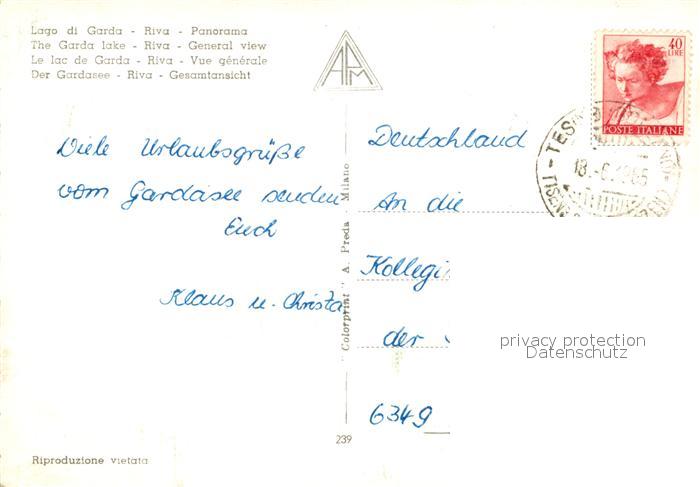 Lago di Garda - Riva - Panorama
The Garda lake - Riva - General view
Le lac de Garda - Riva - Vue générale
Der Gardasee - Riva - Gesamtansicht
APM
40
LIRE
POSTE ITALIANE
Viele Urlaubsgrüße
vom Gardasee senden
Euch
Klaus u. Christa
"Colorprint" A. Preda - Milano
Deutschland
An die
der
6349
privacy protection
Datenschutz
239
Riproduzione vietata